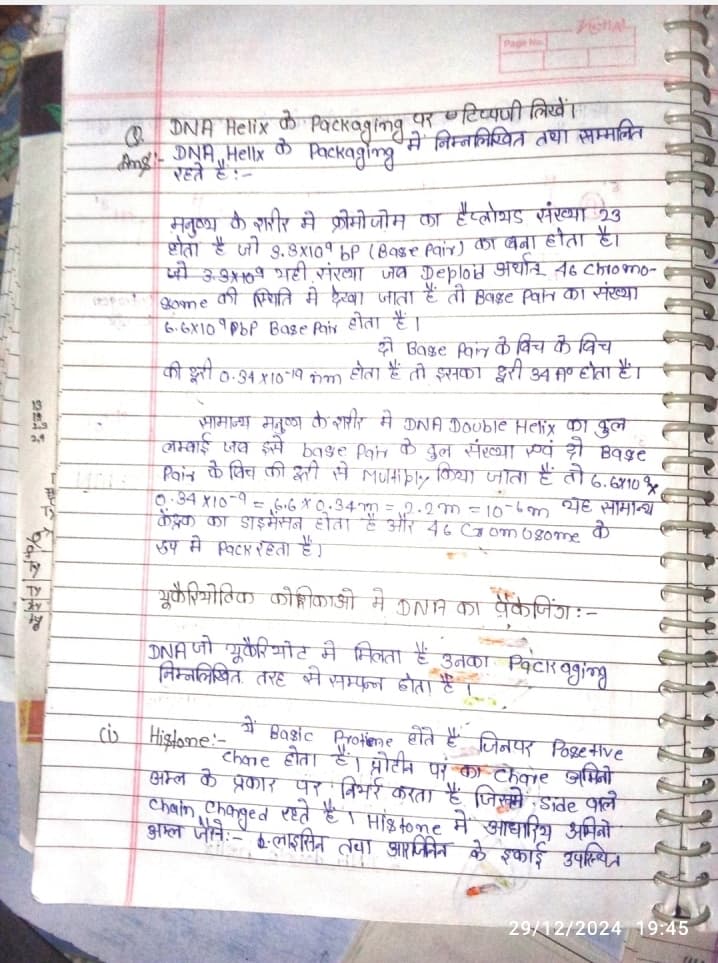 Page No.
Q. DNA Helix के Packaging पर टिप्पणी लिखें।
Ans:- DNA Helix के Packaging में निम्नलिखित तथा सम्मलित
रहते है:-
मनुष्य के शरीर मे क्रोमोजोम का हैप्लोयड संख्या 23
होता है जो 3.3x10⁹ bp (Base Pair) का बना होता है।
जो 3.3x10⁹ यही संख्या जब Deploid अर्थात् 46 Chromo-
some की स्थिति में देखा जाता है तो Base Pair का संख्या
6.6x10⁹ Pbp Base Pair होता है।
दो Base Pair के विच के विच
की दूरी 0.34x10⁻¹⁹ nm होता है तो इसका दूरी 34 A° होता है।
सामान्य मनुष्य के शरीर मे DNA Double Helix का कुल
लम्बाई जब इसे base Pair के कुल संख्या एवं दो Base
Pair के विच की दूरी से Multiply किया जाता है तो 6.6x10⁹x
0.34x10⁻⁹ = 6.6x0.34m = 2.2m = 10⁻⁶m यह सामान्य
केंद्रक का डाइमेंसन होता है और 46 Cromosome के
रूप मे Pack रहता है।
यूकैरियोटिक कोशिकाओ मे DNA का पैकेजिंग:-
DNA जो यूकैरियोट मे मिलता है उनका Packaging
निम्नलिखित तरह से सम्पन्न होता है।
(i) Histone:- ये Basic Protiene होते है जिनपर Posetive
Chare होता है। प्रोटीन पर का Chare अमिनो
अम्ल के प्रकार पर निर्भर करता है जिसमे Side वाले
Chain Changed रहते है। Histone में आधारिय अमिनो
अम्ल जैसे:- लाइसिन तथा आरजिनिन के इकाई उपस्थित
29/12/2024 19:45